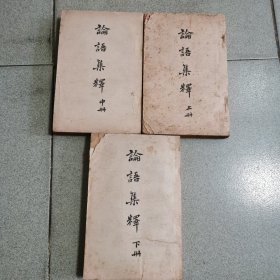 論語集釋 中册
論語集釋 上册
論語集釋 下册